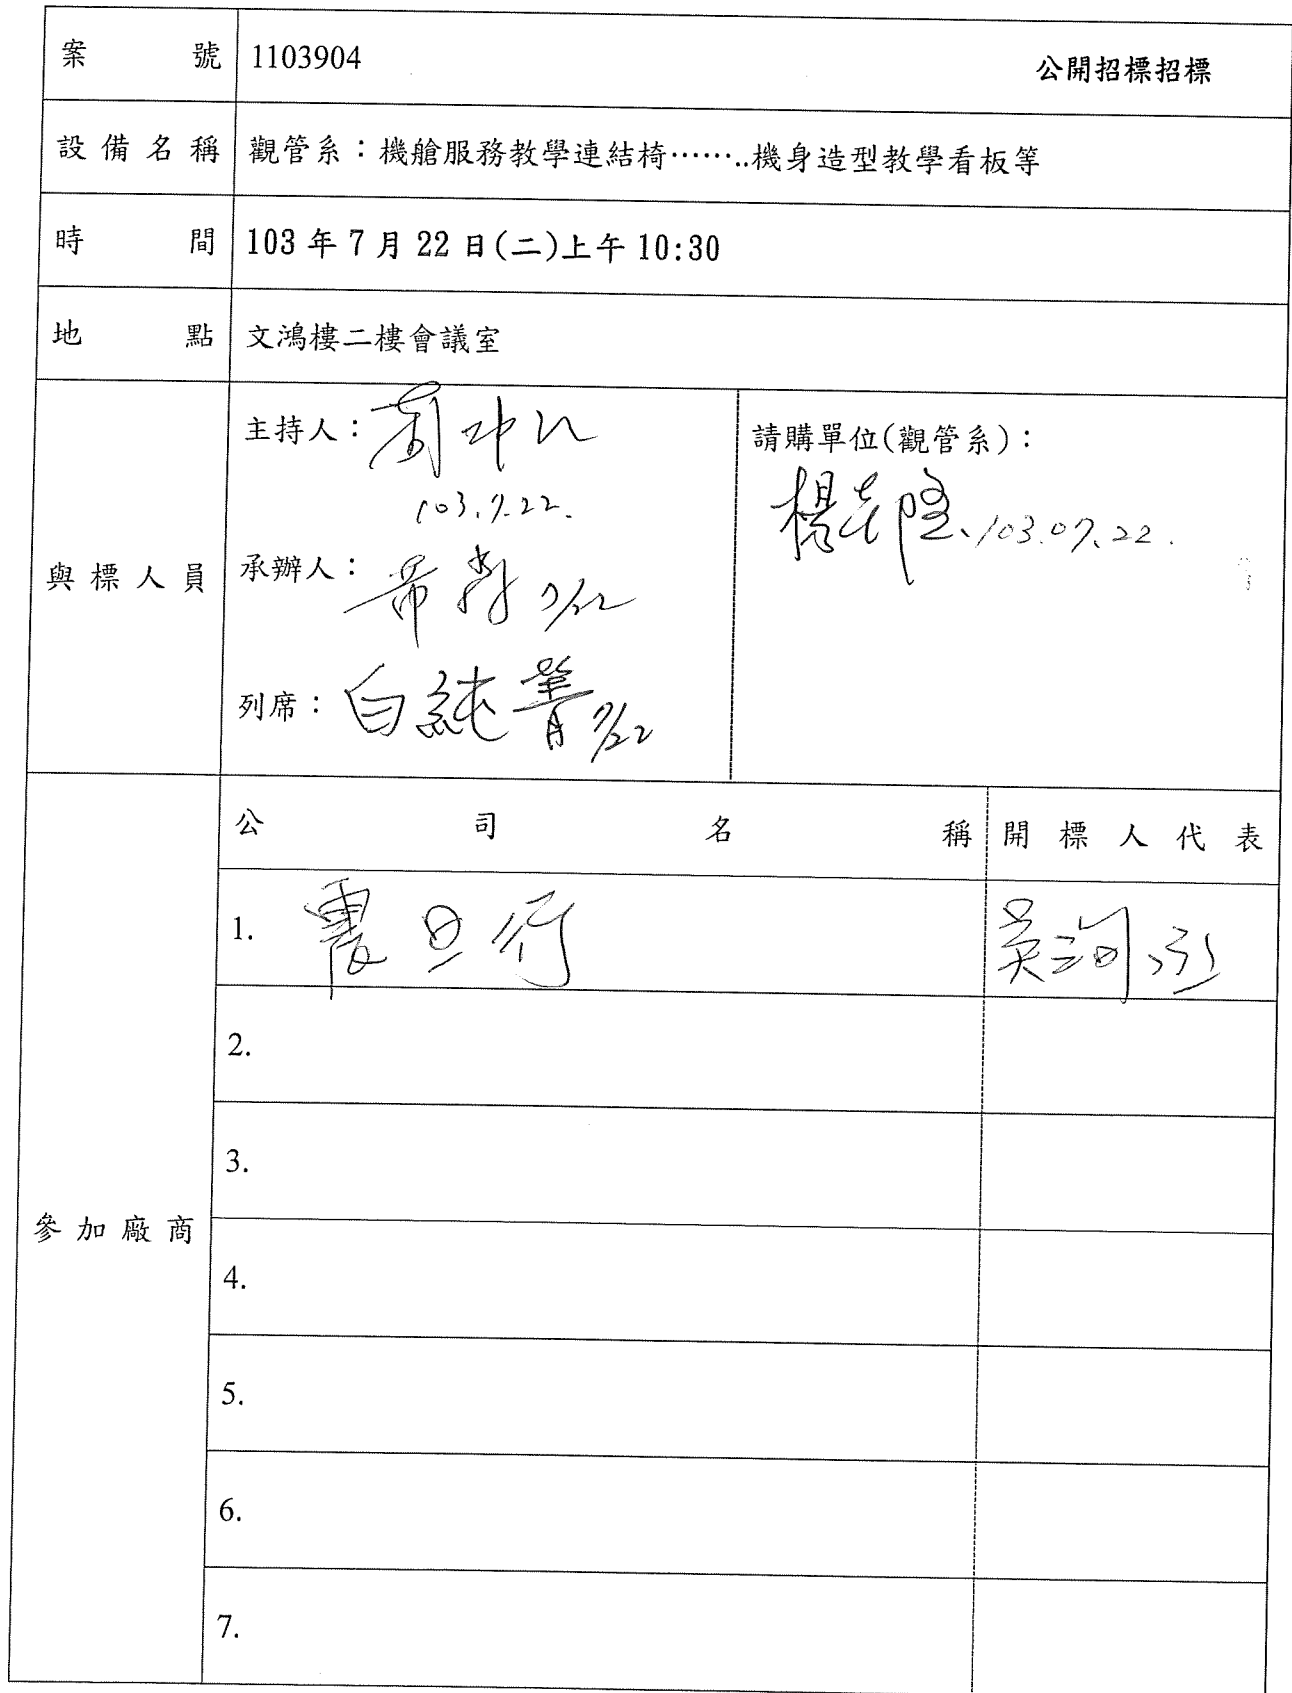 案 號 1103904 公開招標招標
設備名稱 觀管系：機艙服務教學連結椅……..機身造型教學看板等
時 間 103 年 7 月 22 日(二)上午 10:30
地 點 文鴻樓二樓會議室
與標人員
主持人：
103.7.22.
承辦人： 7/22
列席：白純菁 7/22
請購單位(觀管系)：
103.07.22.
參加廠商
公司名稱 開標人代表
1. 震旦行
2.
3.
4.
5.
6.
7.